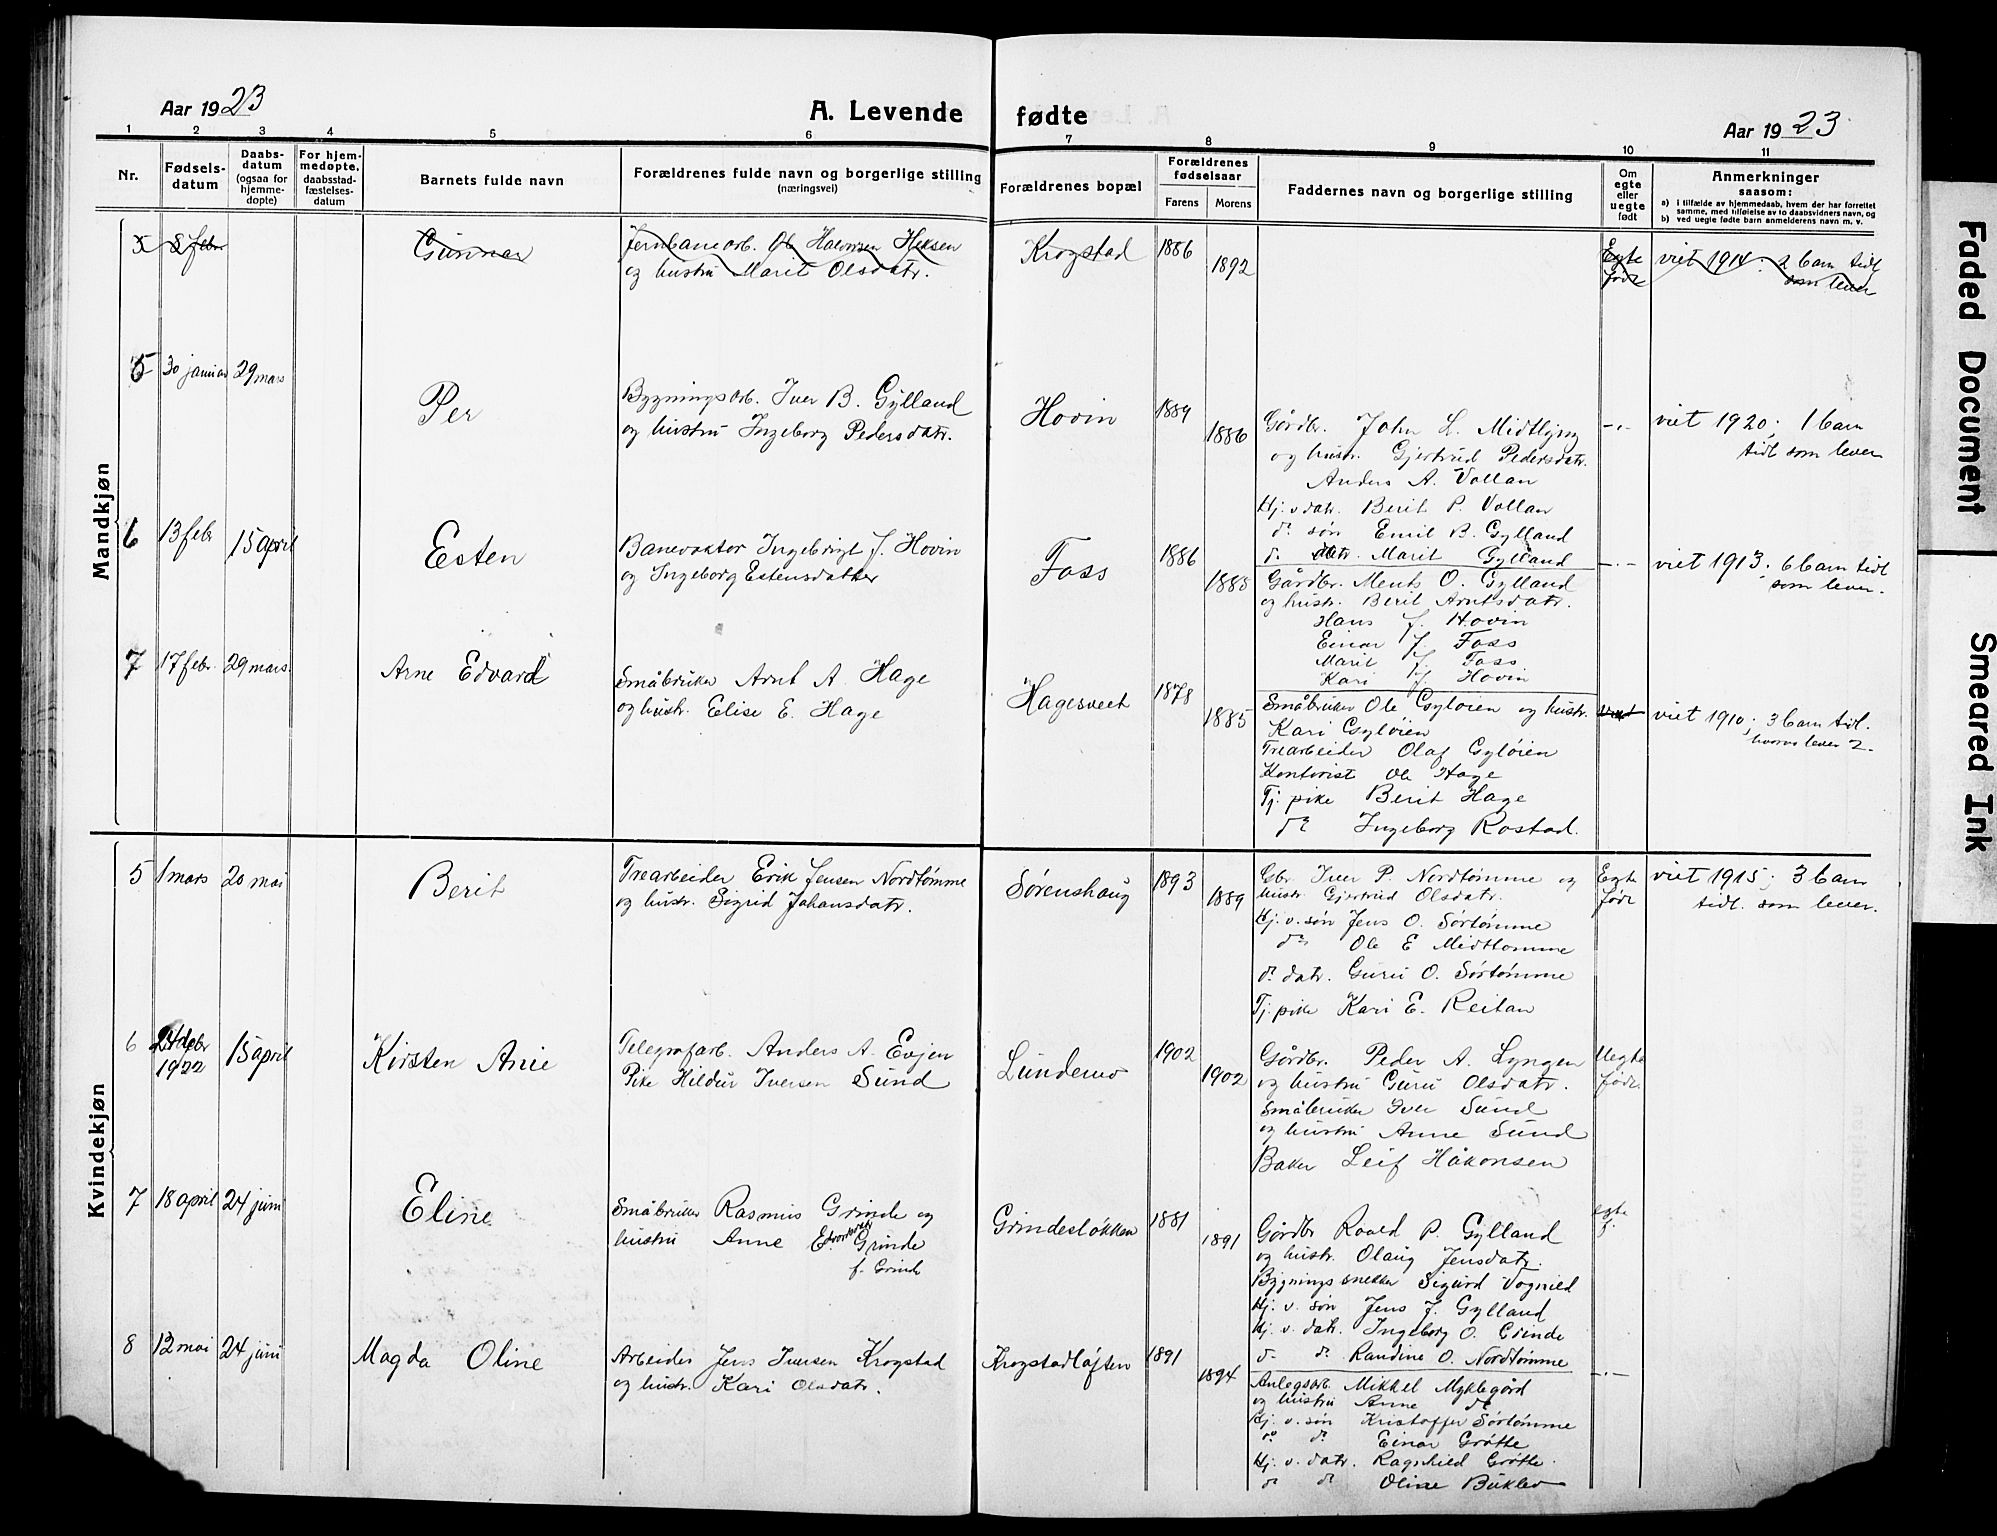 Aar 1923
A. Levende fødte
Aar 1923
1 2 3 4 5 6 7 8 9 10 11
Nr.
Fødsels-
datum
Daabs-
datum
(ogsaa for
hjemme-
døpte)
For hjem-
medøpte,
daabsstad-
fæstelses-
datum
Barnets fulde navn
Forældrenes fulde navn og borgerlige stilling
(næringsvei)
Forældrenes bopæl
Forældrenes
fødselsaar
Farens Morens
Faddernes navn og borgerlige stilling
Om
egte
eller
uegte
født
Anmerkninger
saasom:
a) i tilfælde av hjemmedaab, hvem der har forrettet
samme, med tilføielse av to daabsvidners navn, og
b) ved uegte fødte barn anmelderens navn m. v.
Mandkjøn
5 8 febr Gunnar
Jernbanearb. Ole Halvorsen
og hustru Marit Olsdatr.
Krogstad 1886 1892
Egte
født
viet 1914. 2 barn tidl
som lever
5 30 januar 29 mars Per
Bygningsarb. Iver B. Gylland
og hustru Ingeborg Pedersdatr.
Hovin 1889 1886
Gårdbr. John L. Midtlyng
og hustr. Gjertrud Pedersdatr.
Anders A. Vollan
Hj. v datr. Berit P. Vollan
do søn Emil B. Gylland
do datr. Marit Gylland
-"-
viet 1920; 1 barn
tidl som lever
6 13 febr 15 april Esten
Banevoktor Ingebrigt J. Hovin
og Ingeborg Estensdatter
Foss 1886 1885
Gårdbr. Ments O. Gylland
og hustr. Berit Arntsdatr.
Hans J. Hovin
Einar J. Foss
Marit J. Foss
Kari J. Hovin
-"-
viet 1913; 6 barn tidl
som lever.
7 17 febr. 29 mars. Arne Edvard
Småbruker Arnt A. Hage
og hustr. Elise E. Hage
Hagesveet 1878 1885
Småbruker Ole Gyløien og hustr.
Kari Gyløien
Trearbeider Olaf Gyløien
Kontorist Ole Hage
Tj. pike Berit Hage
do Ingeborg Rostad.
viet 1910; 3 barn tidl.
hvorav lever 2.
Kvindekjøn
5 1 mars 20 mai Berit
Trearbeider Erik Jensen Nordtømme
og hustr. Sigrid Johansdatr.
Sørenshaug 1893 1889
Gbr. Iver P. Nordtømme og
hustr. Gjertrud Olsdatr.
Hj. v. søn Jens O. Sørtømme
do Ole E Midttømme
do datr. Guru O. Sørtømme
Tj. pike Kari E. Reitan
Egte
født
viet 1915; 3 barn
tidl. som lever.
6 1922 15 april Kirsten Anie
Telegrafarb. Anders A. Evjen
Pike Hildur Iversen Sund
Lundemo 1902 1902
Gårdbr. Peder A. Lyngen
og hustru Guru Olsdatr.
Småbruker Iver Sund
og hustru Anne Sund
Baker Leif Håkonsen
Uegte
født.
7 18 april 24 juni Eline
Småbruker Rasmus Grinde og
hustru Anne Grinde
f. Grinde
Grindesløkken 1881 1891
Gårdbr Roald P. Gylland
og hustr. Olaug Jensdatr.
Bygningssnekker Sigurd Vognild
Hj. v. søn Jens J. Gylland
Hj. v. datr. Ingeborg O. Grinde
do do Randine O. Nordtømme
egte
f.
8 12 mai 24 juni Magda Oline
Arbeider Jens Iversen Krogstad
og hustr. Kari Olsdatr.
Krogstadløften 1891 1894
Anlegsarb. Mikkel Myklegård
og hustru Anne do
Hj. v. søn Kristoffer Sørtømme
do do Einar Grøtte
Hj. v. datr. Ragnhild Grøtte.
do do Oline Buklev
-"-
Faded Document
Smeared Ink